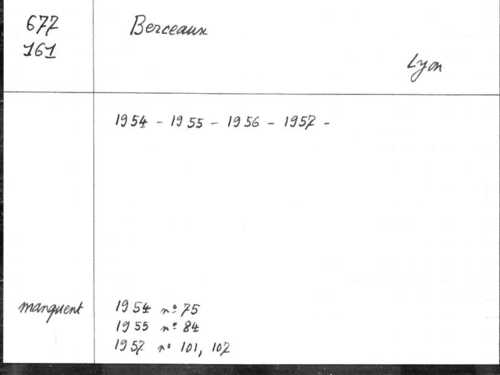 677
161
Berceaux
Lyon
1954 - 1955 - 1956 - 1957 -
manquent
1954 n° 75
1955 n° 84
1957 n° 101, 107